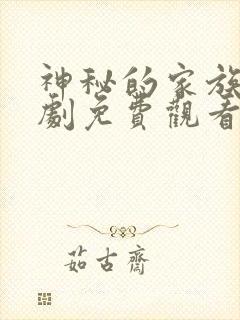 神秘的家族
劇免費觀看
茹古齋